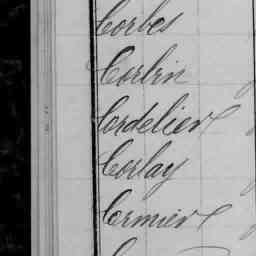 Corbes
Corbin
Cordelier
Corlay
Cormier